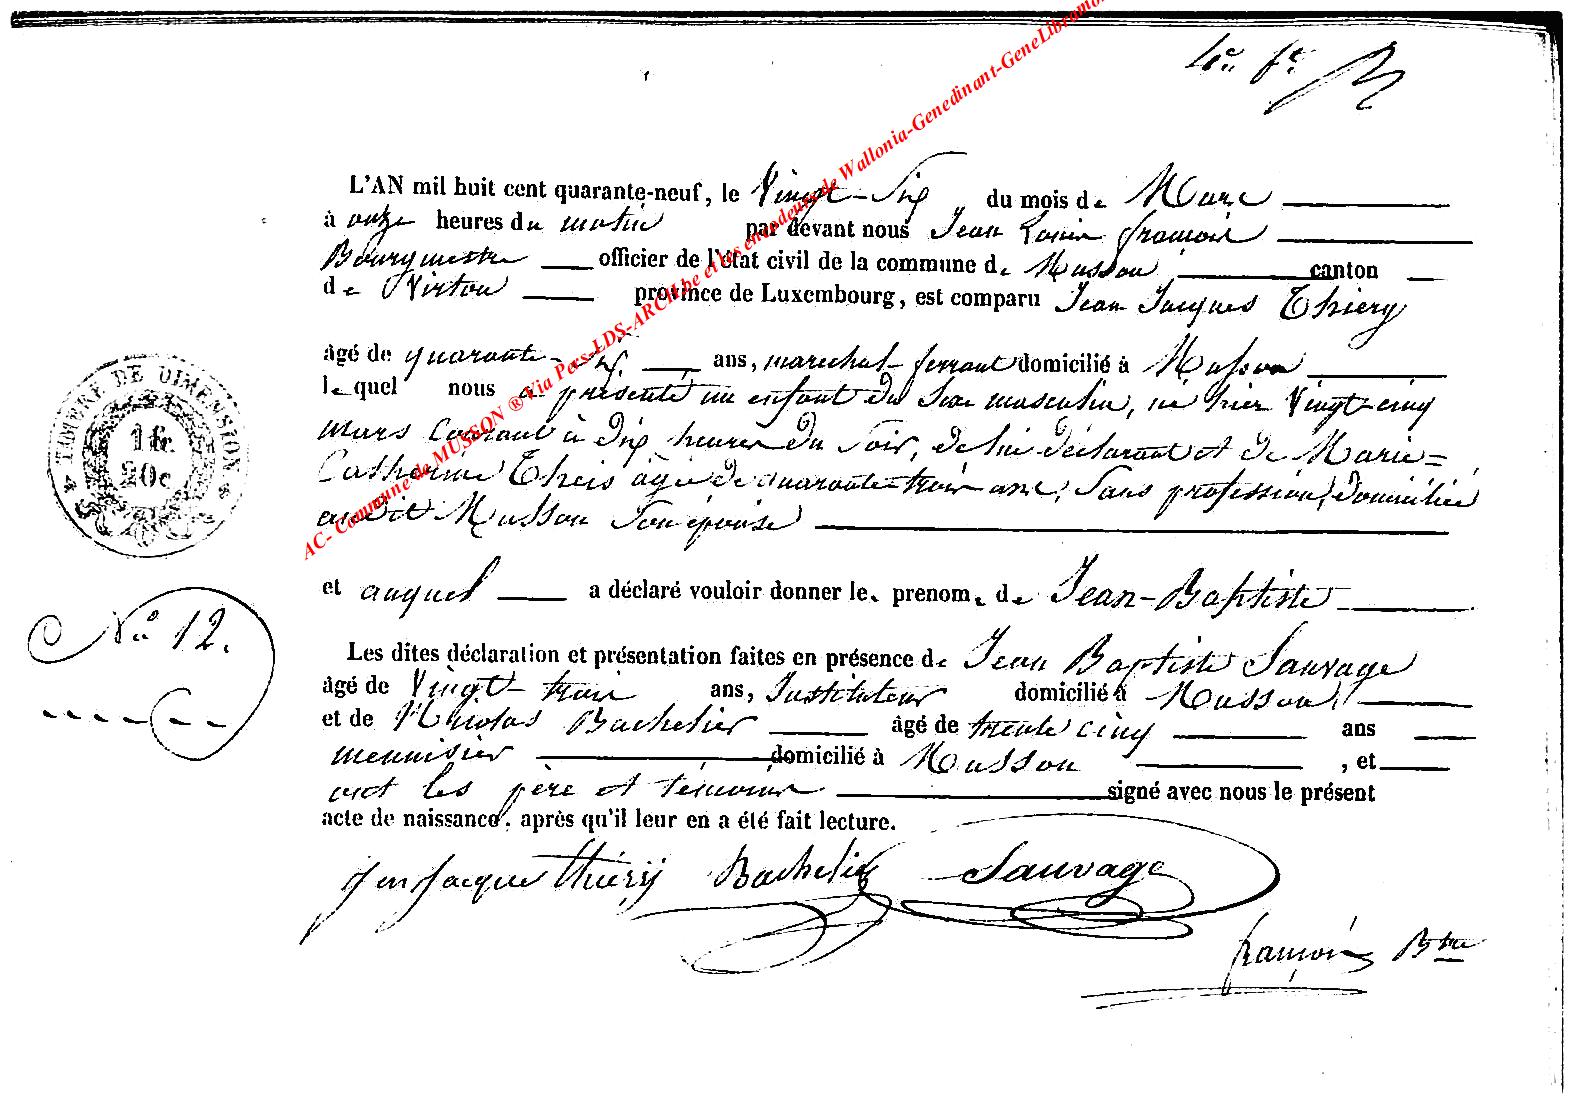 4e. ft.
L'AN mil huit cent quarante-neuf, le Vingt-Six du mois de Mars
à onze heures du matin par devant nous Jean Louis françois
Bourgmestre officier de l'état civil de la commune de Musson canton
de Virton province de Luxembourg, est comparu Jean Jacques Thiery
âgé de quarante- ans, marechal-ferrant domicilié à Musson
lequel nous a présenté un enfant du sexe masculin, né hier Vingt-cinq
mars courant à dix heures du soir, de lui déclarant et de Marie=
Catherine Theis agée de quarante-trois ans, Sans profession, domiciliée
audit Musson Son épouse
et auquel a déclaré vouloir donner le prenom de Jean-Baptiste
Les dites déclaration et présentation faites en présence de Jean Baptiste Sauvage
âgé de Vingt-trois ans, Instituteur domicilié à Musson,
et de Nicolas Bachelier âgé de trente cinq ans
menuisier domicilié à Musson , et
ont les père et témoins signé avec nous le présent
acte de naissance, après qu'il leur en a été fait lecture.
Jen Jacque thiery Bachelier Sauvage
françois Btre
TIMBRE DE DIMENSION
1 fr.
20 c
No. 12.
AC- Commune de MUSSON ® Via Pers-LDS-ARCH.be et les encodeurs de Wallonia-Genedinant-GeneLibramo